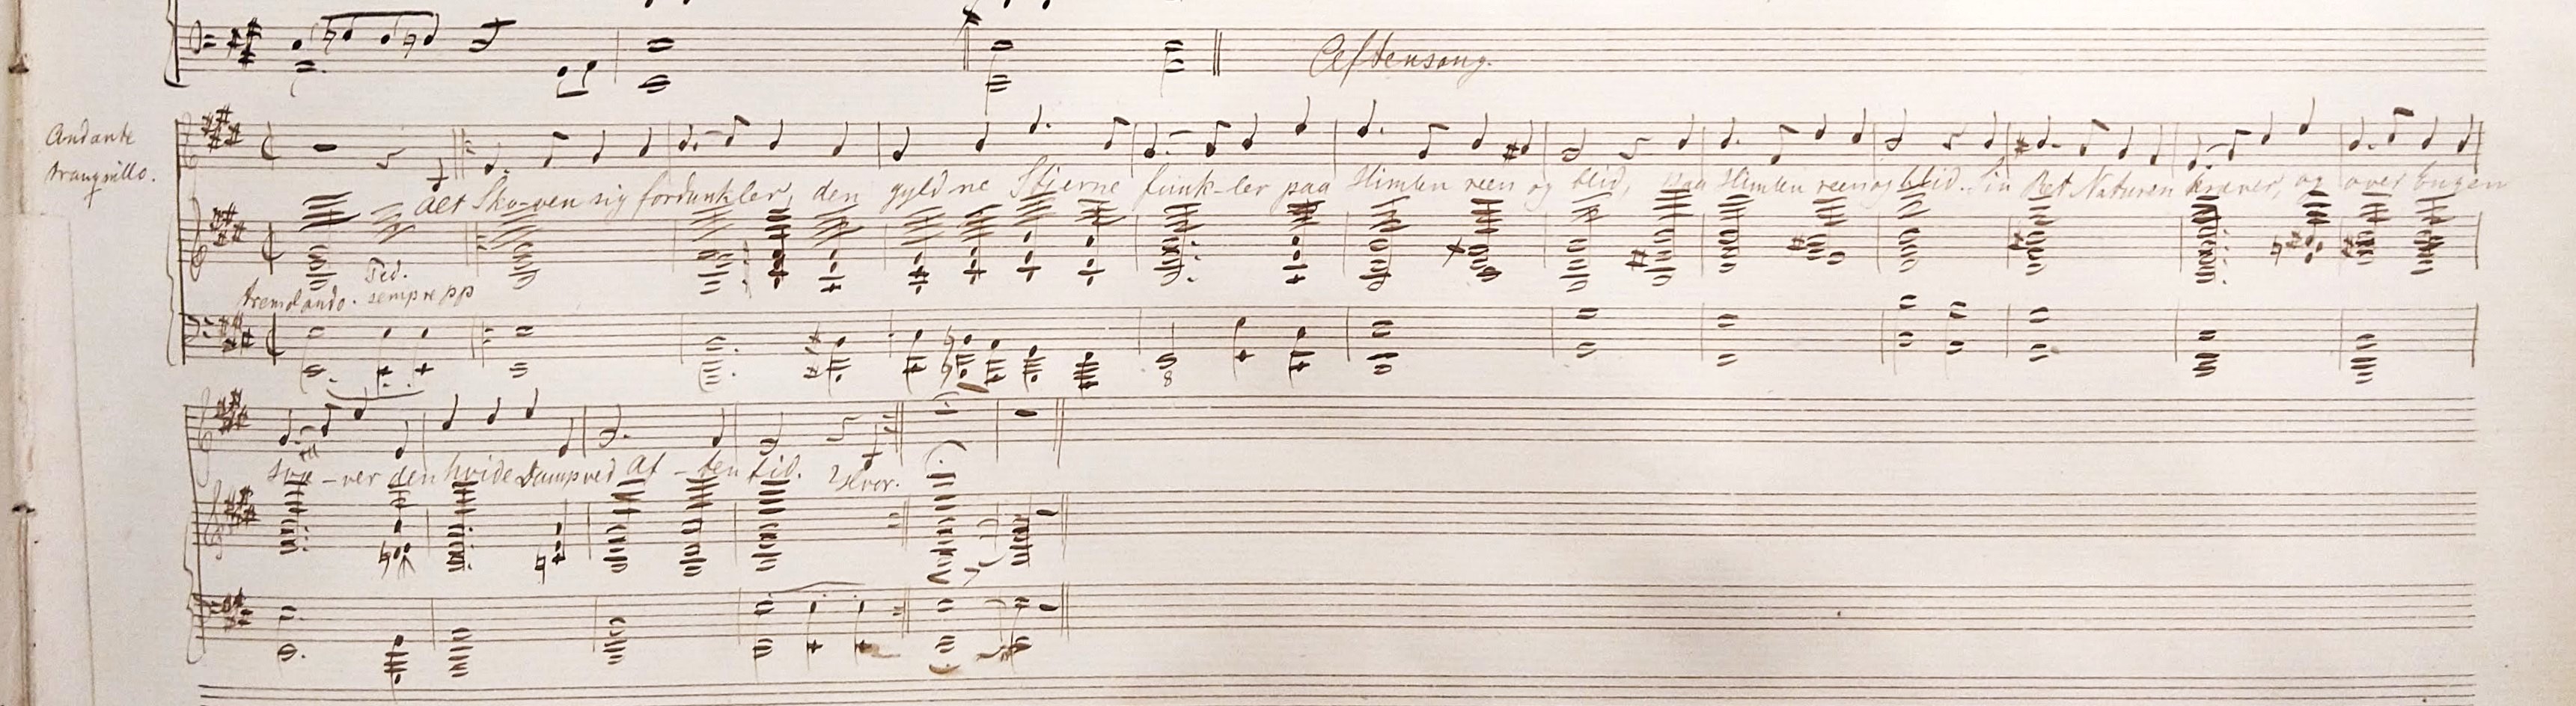 Aftensang.
Andante
tranquillo.
Alt Sko-ven sig fordunkler, den gyld ne Stjerne funk-ler paa Himlen reen og blid, paa Himlen reen og blid. Sin Ret Naturen kræver, og over Engen
Ped.
tremolando. sempre pp
8
svæ-ver den hvide Damp ved Af-ten tid. 2 Hvor.